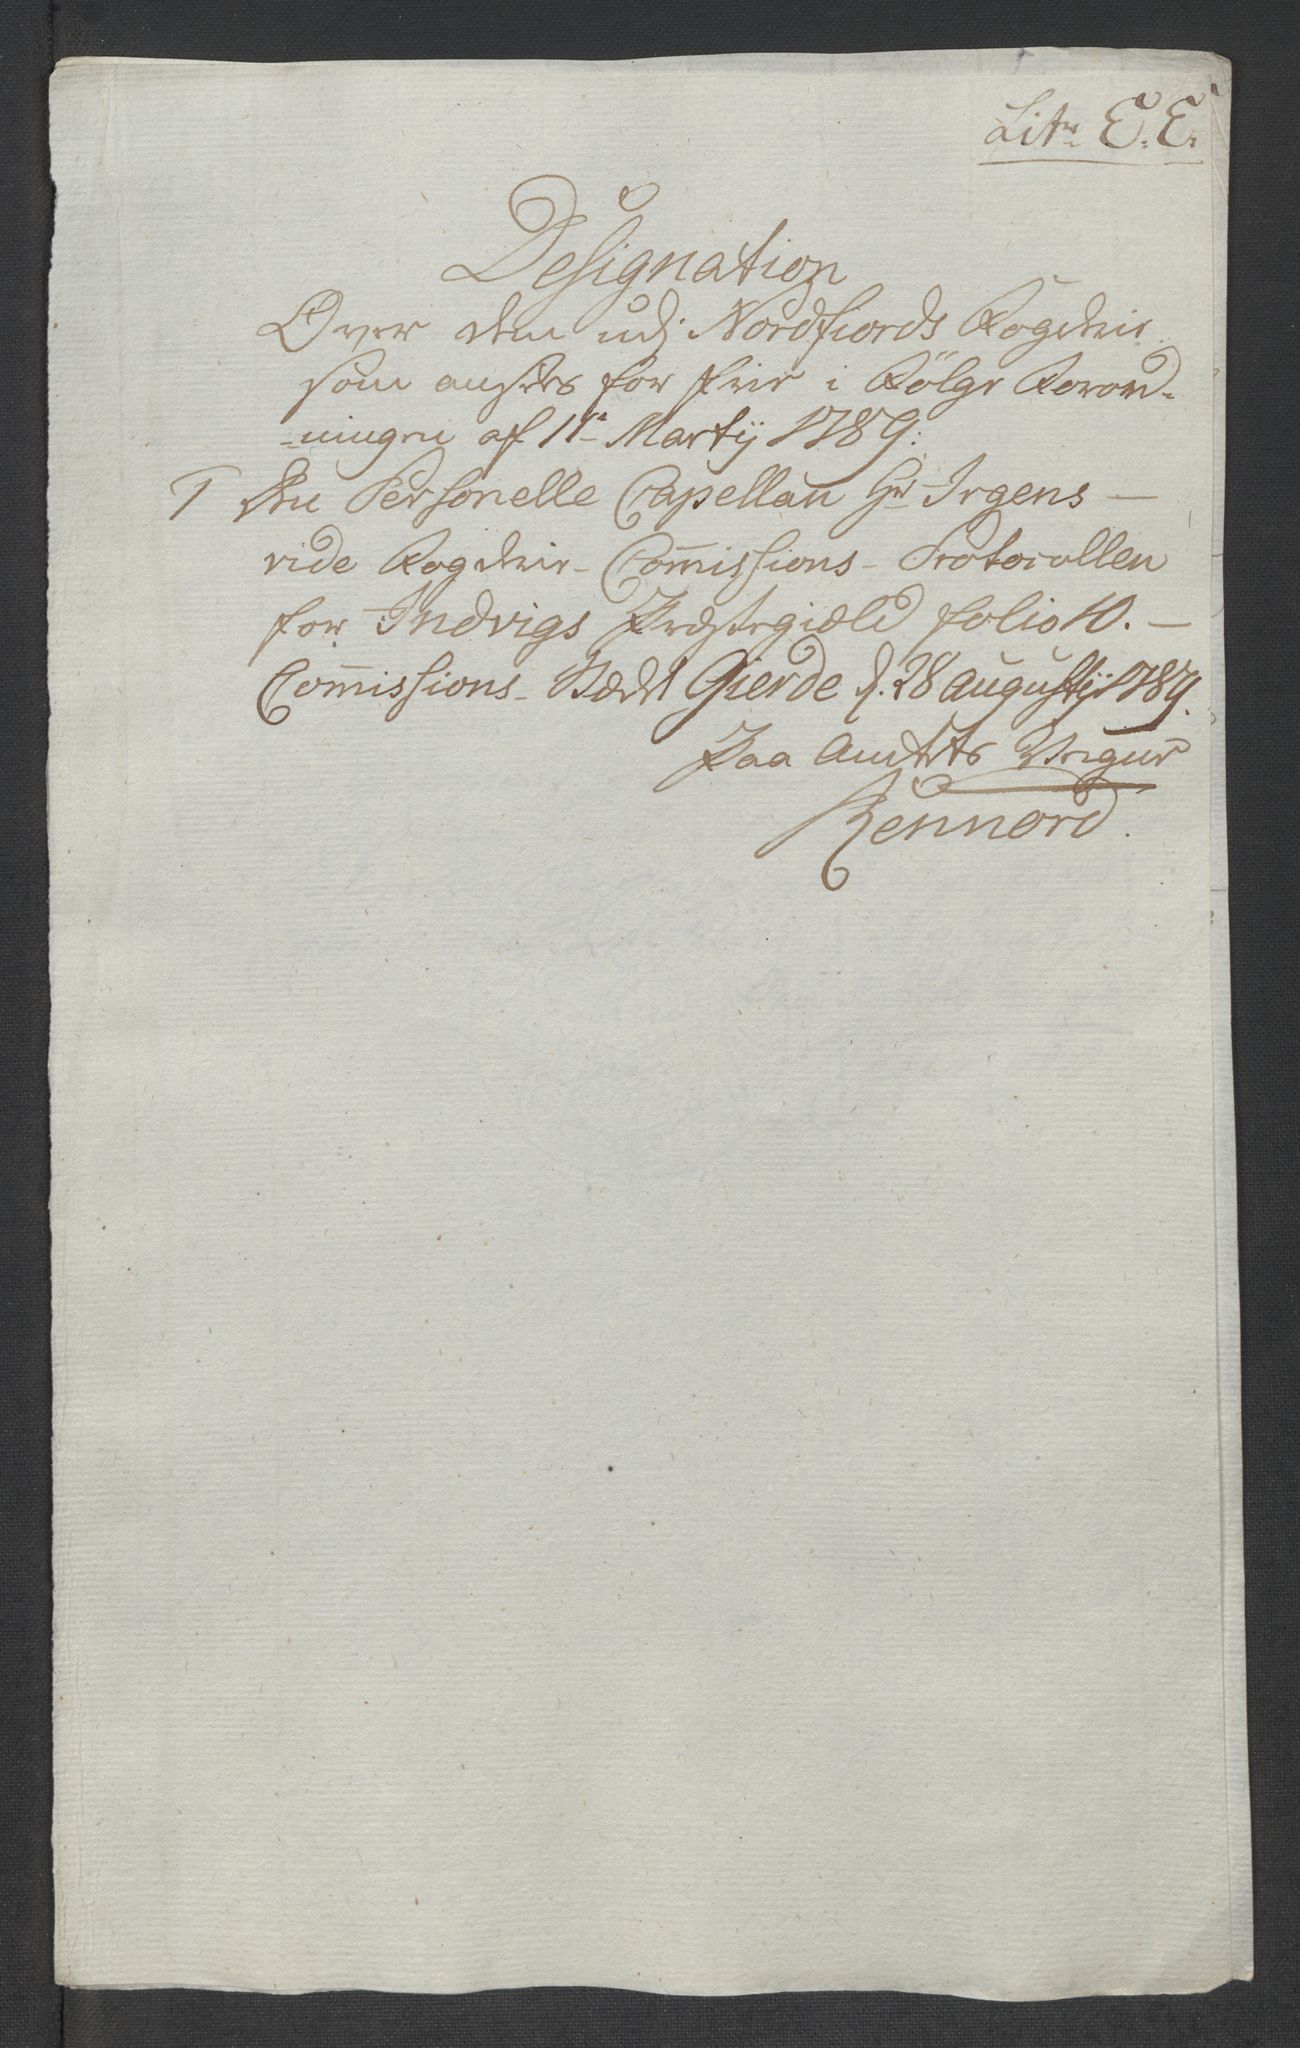 Litr E. E.
Designation
Over dem udj Nordfiords Fogderie
som ansees for frie i Følge Forord-
-ningen af 11te Martij 1789:
1 Den Personelle Capellan Hr Irgens —
vide Fogderie- Commissions- Protocollen
for Indvigs Præstegield folio 10. —
Commissions- Stædet Gierde d. 28 Augustij 1789.
Paa Amtets Vegne
Rennord.